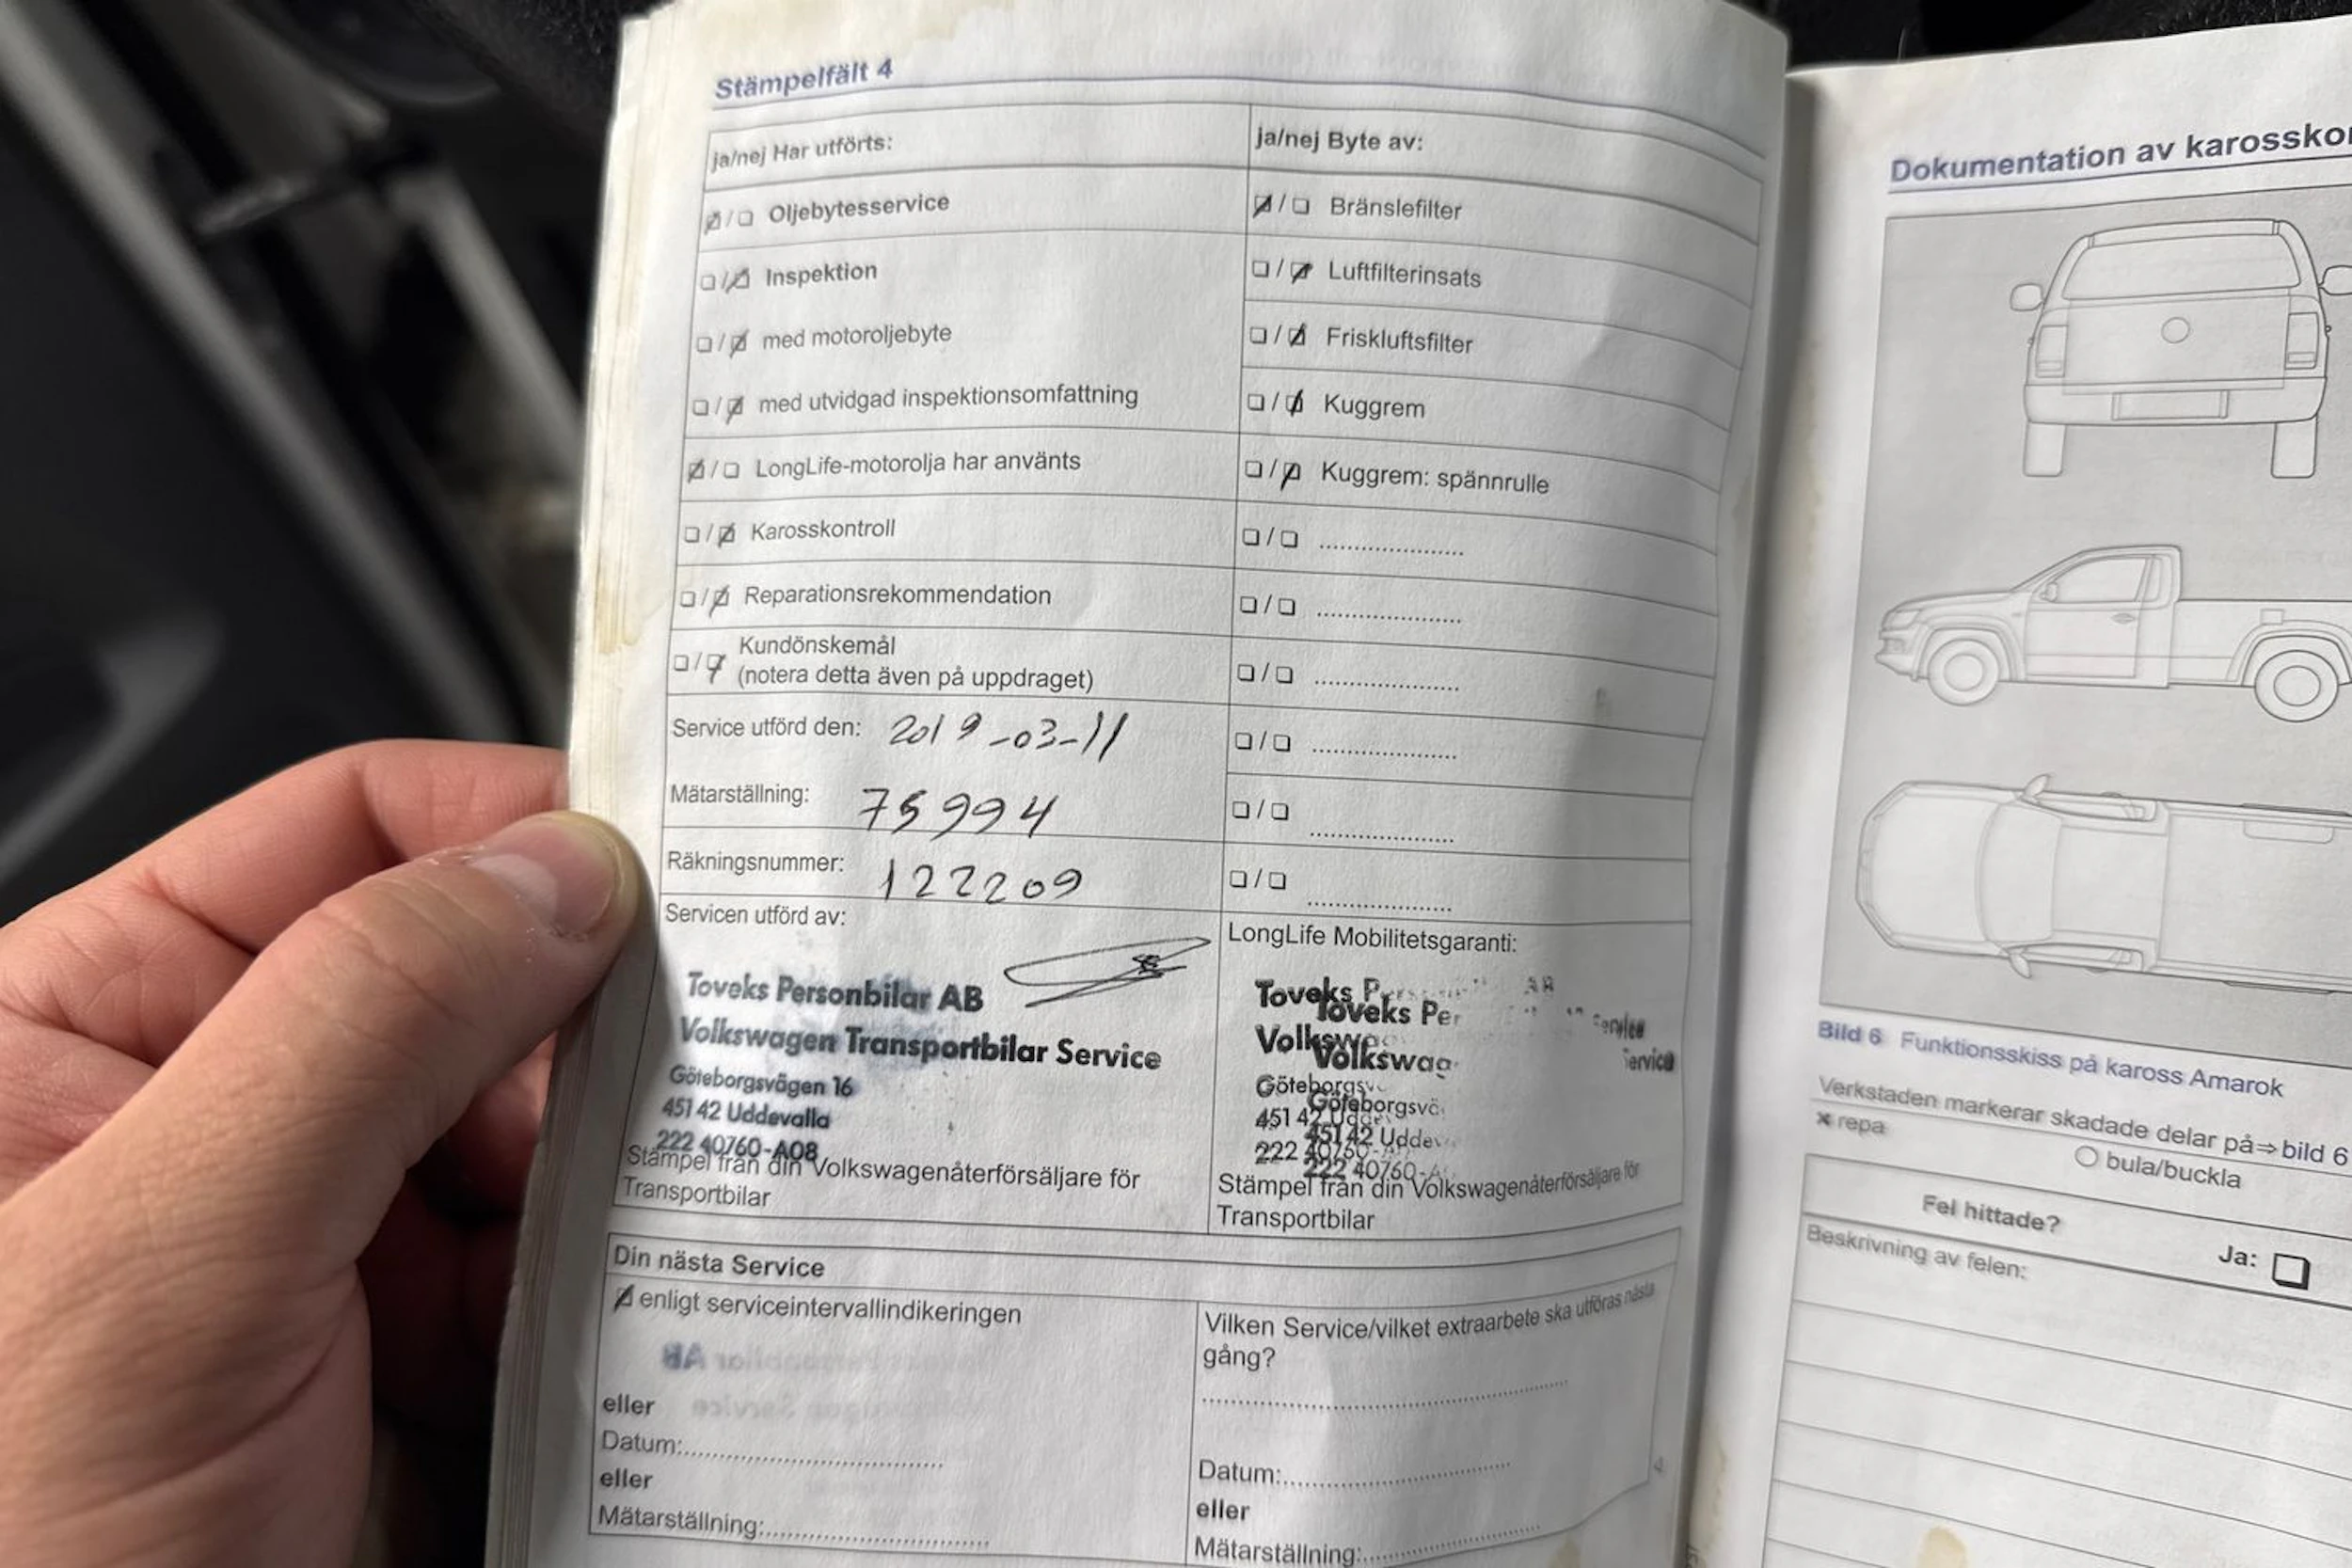 Stämpelfält 4
ja/nej Har utförts:
☑/☐ Oljebytesservice
☐/☑ Inspektion
☐/☑ med motoroljebyte
☐/☑ med utvidgad inspektionsomfattning
☑/☐ LongLife-motorolja har använts
☐/☑ Karosskontroll
☐/☑ Reparationsrekommendation
☐/☑ Kundönskemål
(notera detta även på uppdraget)
Service utförd den: 2019-03-11
Mätarställning: 75994
Räkningsnummer: 122209
Servicen utförd av:
Toveks Personbilar AB
Volkswagen Transportbilar Service
Göteborgsvägen 16
451 42 Uddevalla
222 40760-A08
Stämpel från din Volkswagenåterförsäljare för
Transportbilar
ja/nej Byte av:
☑/☐ Bränslefilter
☐/☑ Luftfilterinsats
☐/☑ Friskluftsfilter
☐/☑ Kuggrem
☐/☑ Kuggrem: spännrulle
☐/☐ ......................
☐/☐ ......................
☐/☐ ......................
☐/☐ ......................
☐/☐ ......................
☐/☐ ......................
LongLife Mobilitetsgaranti:
Toveks
Toveks Per
Volkswag
Göteborgsv
451 42 Udde
222 40760-A
Stämpel från din Volkswagenåterförsäljare för
Transportbilar
Din nästa Service
☑ enligt serviceintervallindikeringen
eller
Datum:
eller
Mätarställning:
Vilken Service/vilket extraarbete ska utföras nästa
gång?
Datum:
eller
Mätarställning:
4
Dokumentation av karossko
Bild 6 Funktionsskiss på kaross Amarok
Verkstaden markerar skadade delar på⇒bild 6
× repa
○ bula/buckla
Fel hittade?
Ja: ☐
Beskrivning av felen: